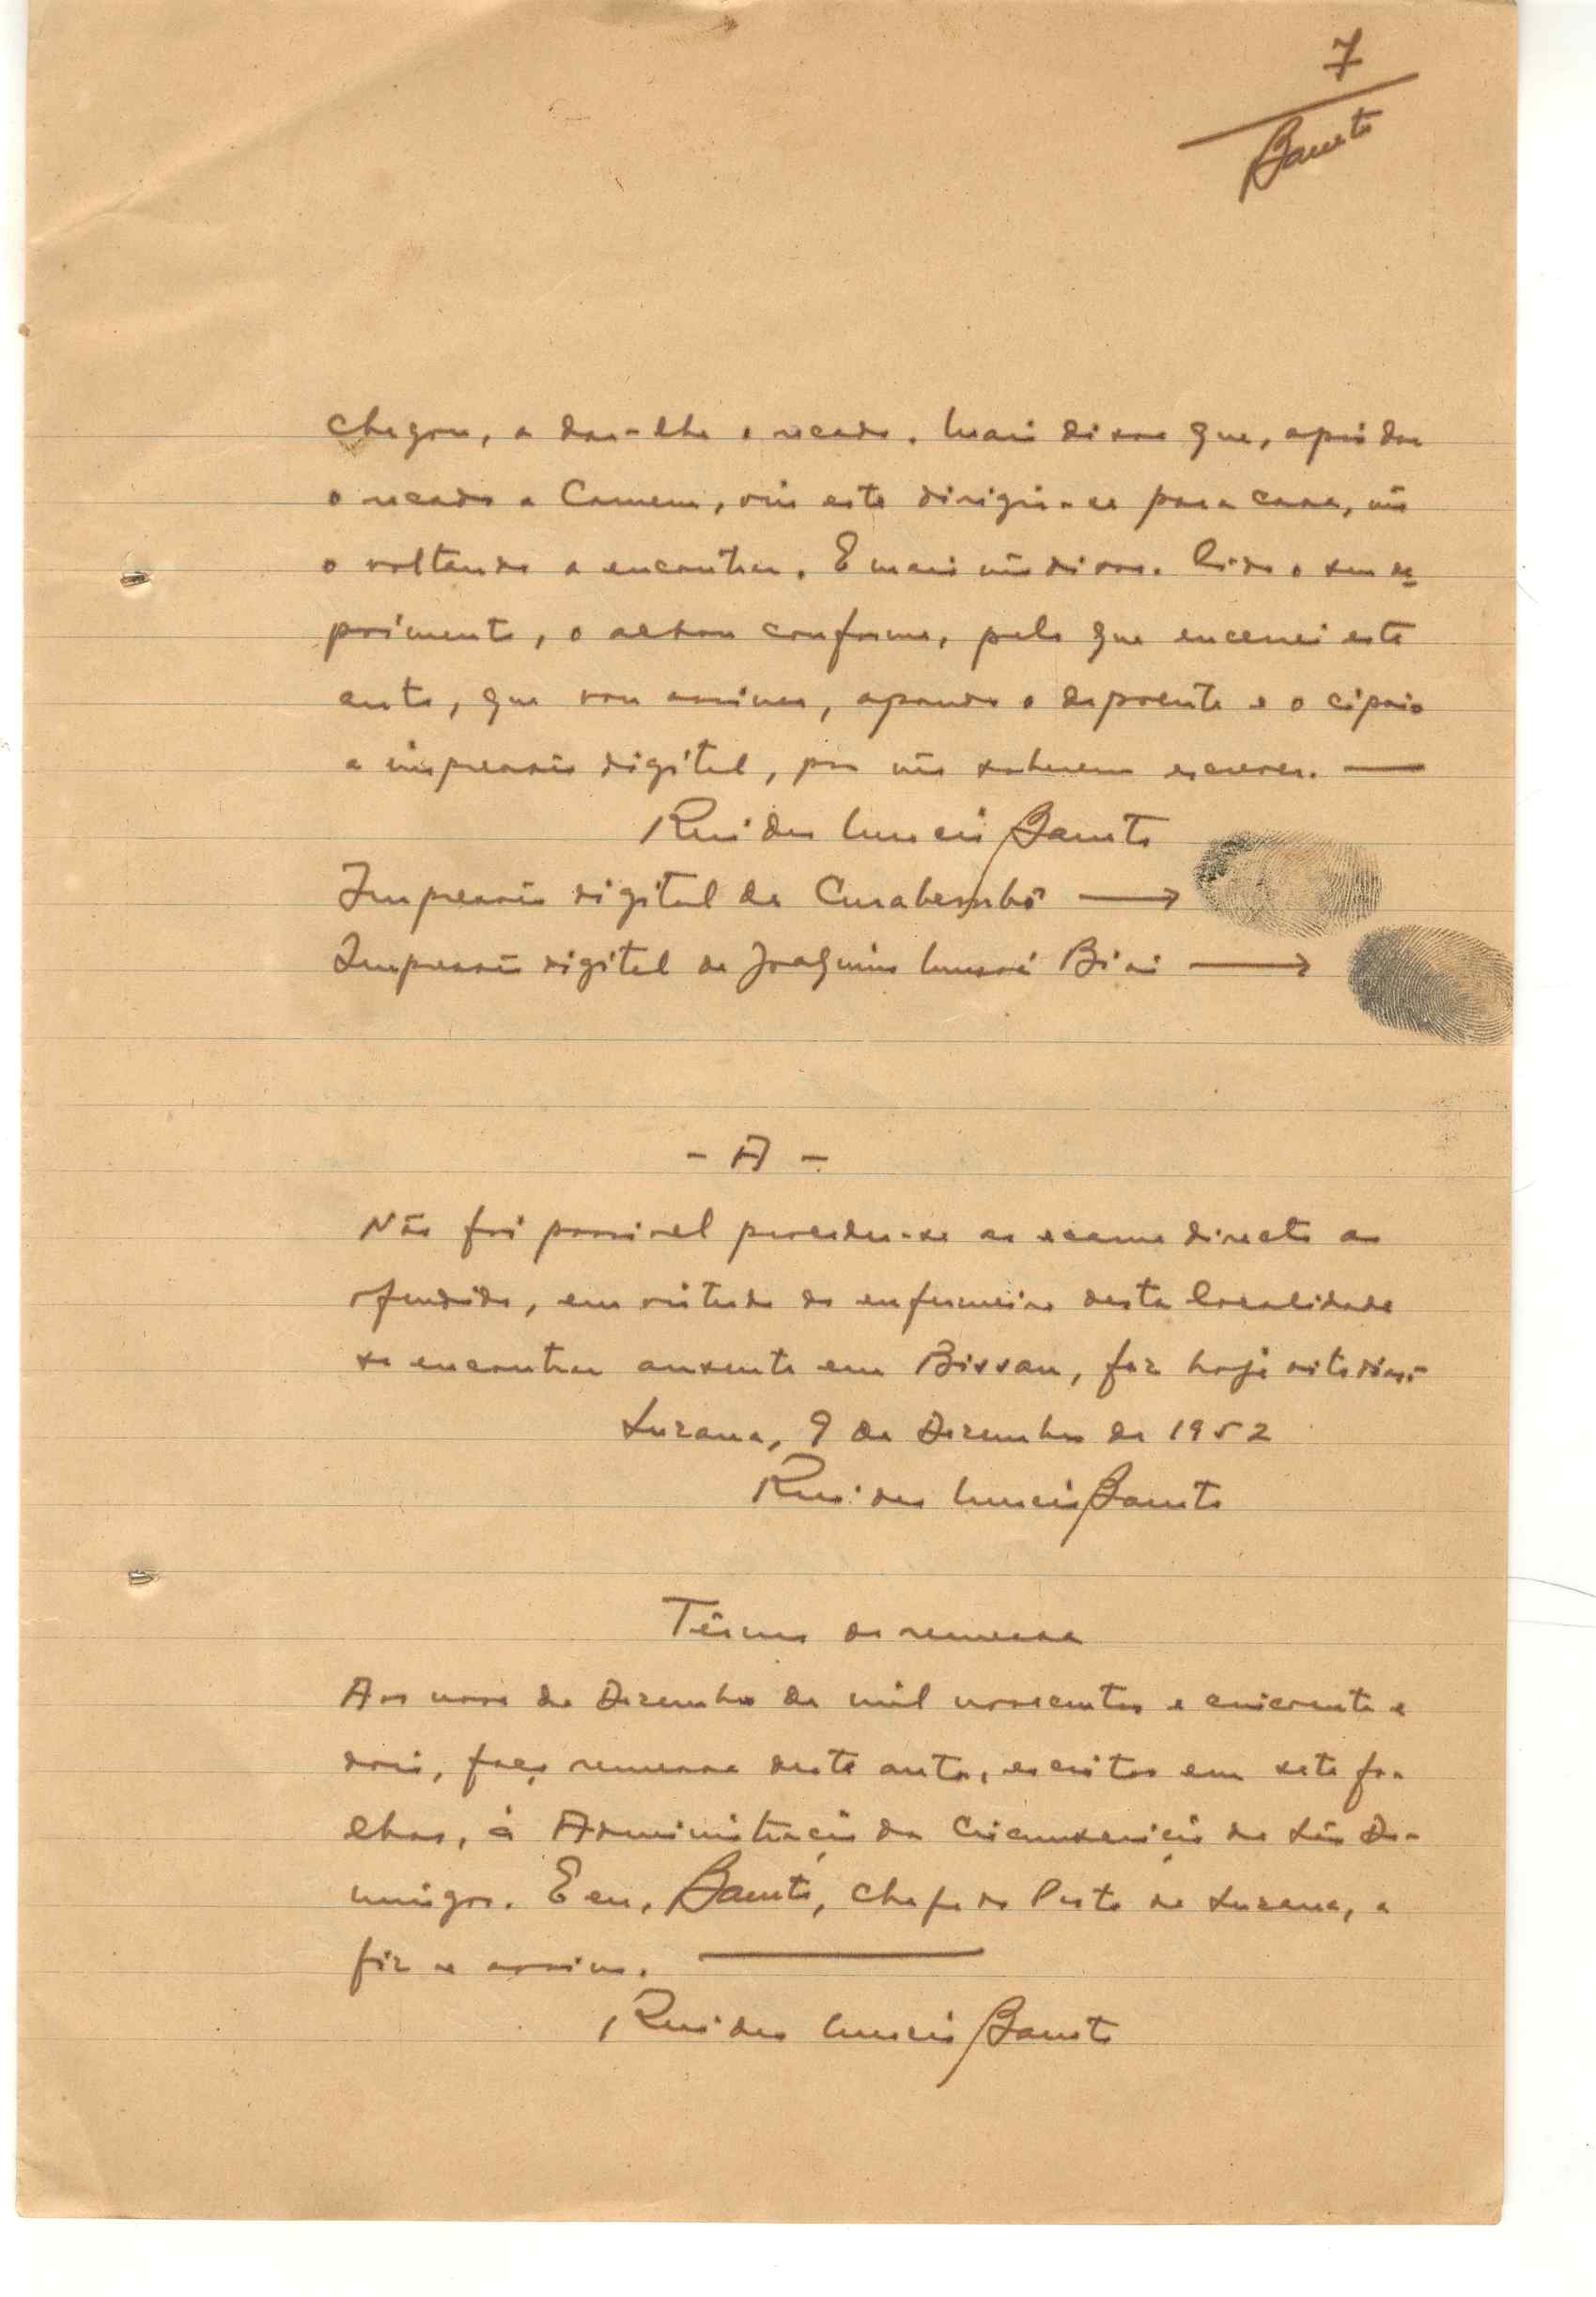 7
Barreto
chegou, a dar-lhe o recado. Mais disse que, após dar
o recado a Camem, viu este dirigir-se para casa, não
o voltando a encontrar. E mais não disse. Lido o seu de
poimento, o achou conforme, pelo que encerrei este
auto, que vou assinar, apondo o depoente e o cipaio
a impressão digital, por não saberem escrever. —
Rui dos Barreto
Impressão digital de Curabembô →
Impressão digital de Joaquim Biai →
- A -
Não foi possível proceder-se ao exame directo ao
ofendido, em virtude do enfermeiro desta localidade
se encontrar ausente em Bissau, faz hoje oito dias.
Suzana, 9 de Dezembro de 1952
Rui dos Barreto
Têrmo de remessa
Aos nove de Dezembro de mil novecentos e cincoenta e
dois, faço remessa deste auto, escritos em sete fo-
lhas, à Administração da Circunscrição de São Do-
mingos. E eu, Barreto, Chefe do Posto de Suzana, a
fiz e assino. —
Rui dos Barreto